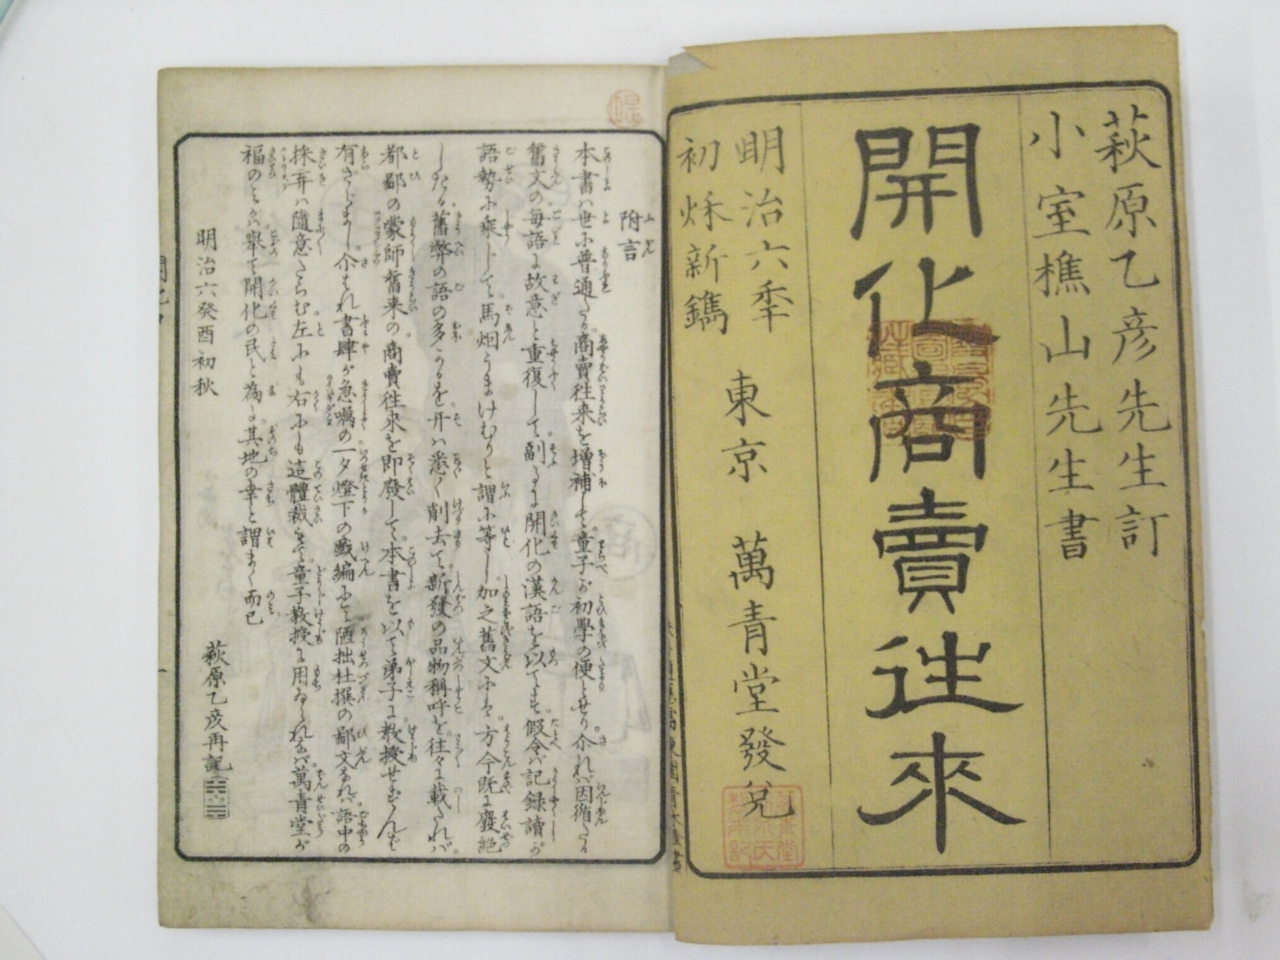 萩原乙彦先生訂
小室樵山先生書
開化商賣往來
明治六季
初秌新鐫
東京 萬青堂發兌
附言
本書ハ世に普通たる商賣往来を増補して童子が初學の便とせり介れバ因循たる
舊文の毎語に故意と重復して副るに開化の漢語を以てすも假令バ記録讀が
語勢に乗じて馬烟うまけむりと謂に等し加之舊文にて方今既に廢絶
したる舊弊の語の多かるを开ハ悉く削去て新發の品物稱呼を往々に載たれバ
都鄙の蒙師舊来の商賣往來を即廢して本書を以て弟子に教授せずんば
有ざらまし介はれ書肆が急嘱の一夕燈下の戯編にて陋拙杜撰の鄙文なれバ語中の
採弃ハ隨意たらむ左にも右にも這體裁もて童子教授に用ゐられなバ萬青堂が
福のミかハ擧て開化の民と為る其地の幸と謂まく而已
明治六癸酉初秋
萩原乙彦再記